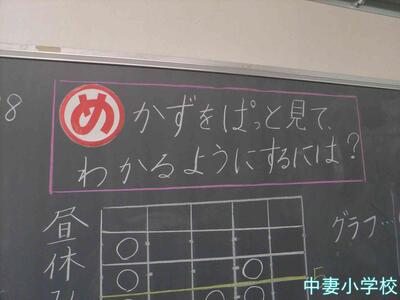 8
め
かずをぱっと見て、
わかるようにするには?
昼休み
グラフ…
中妻小学校